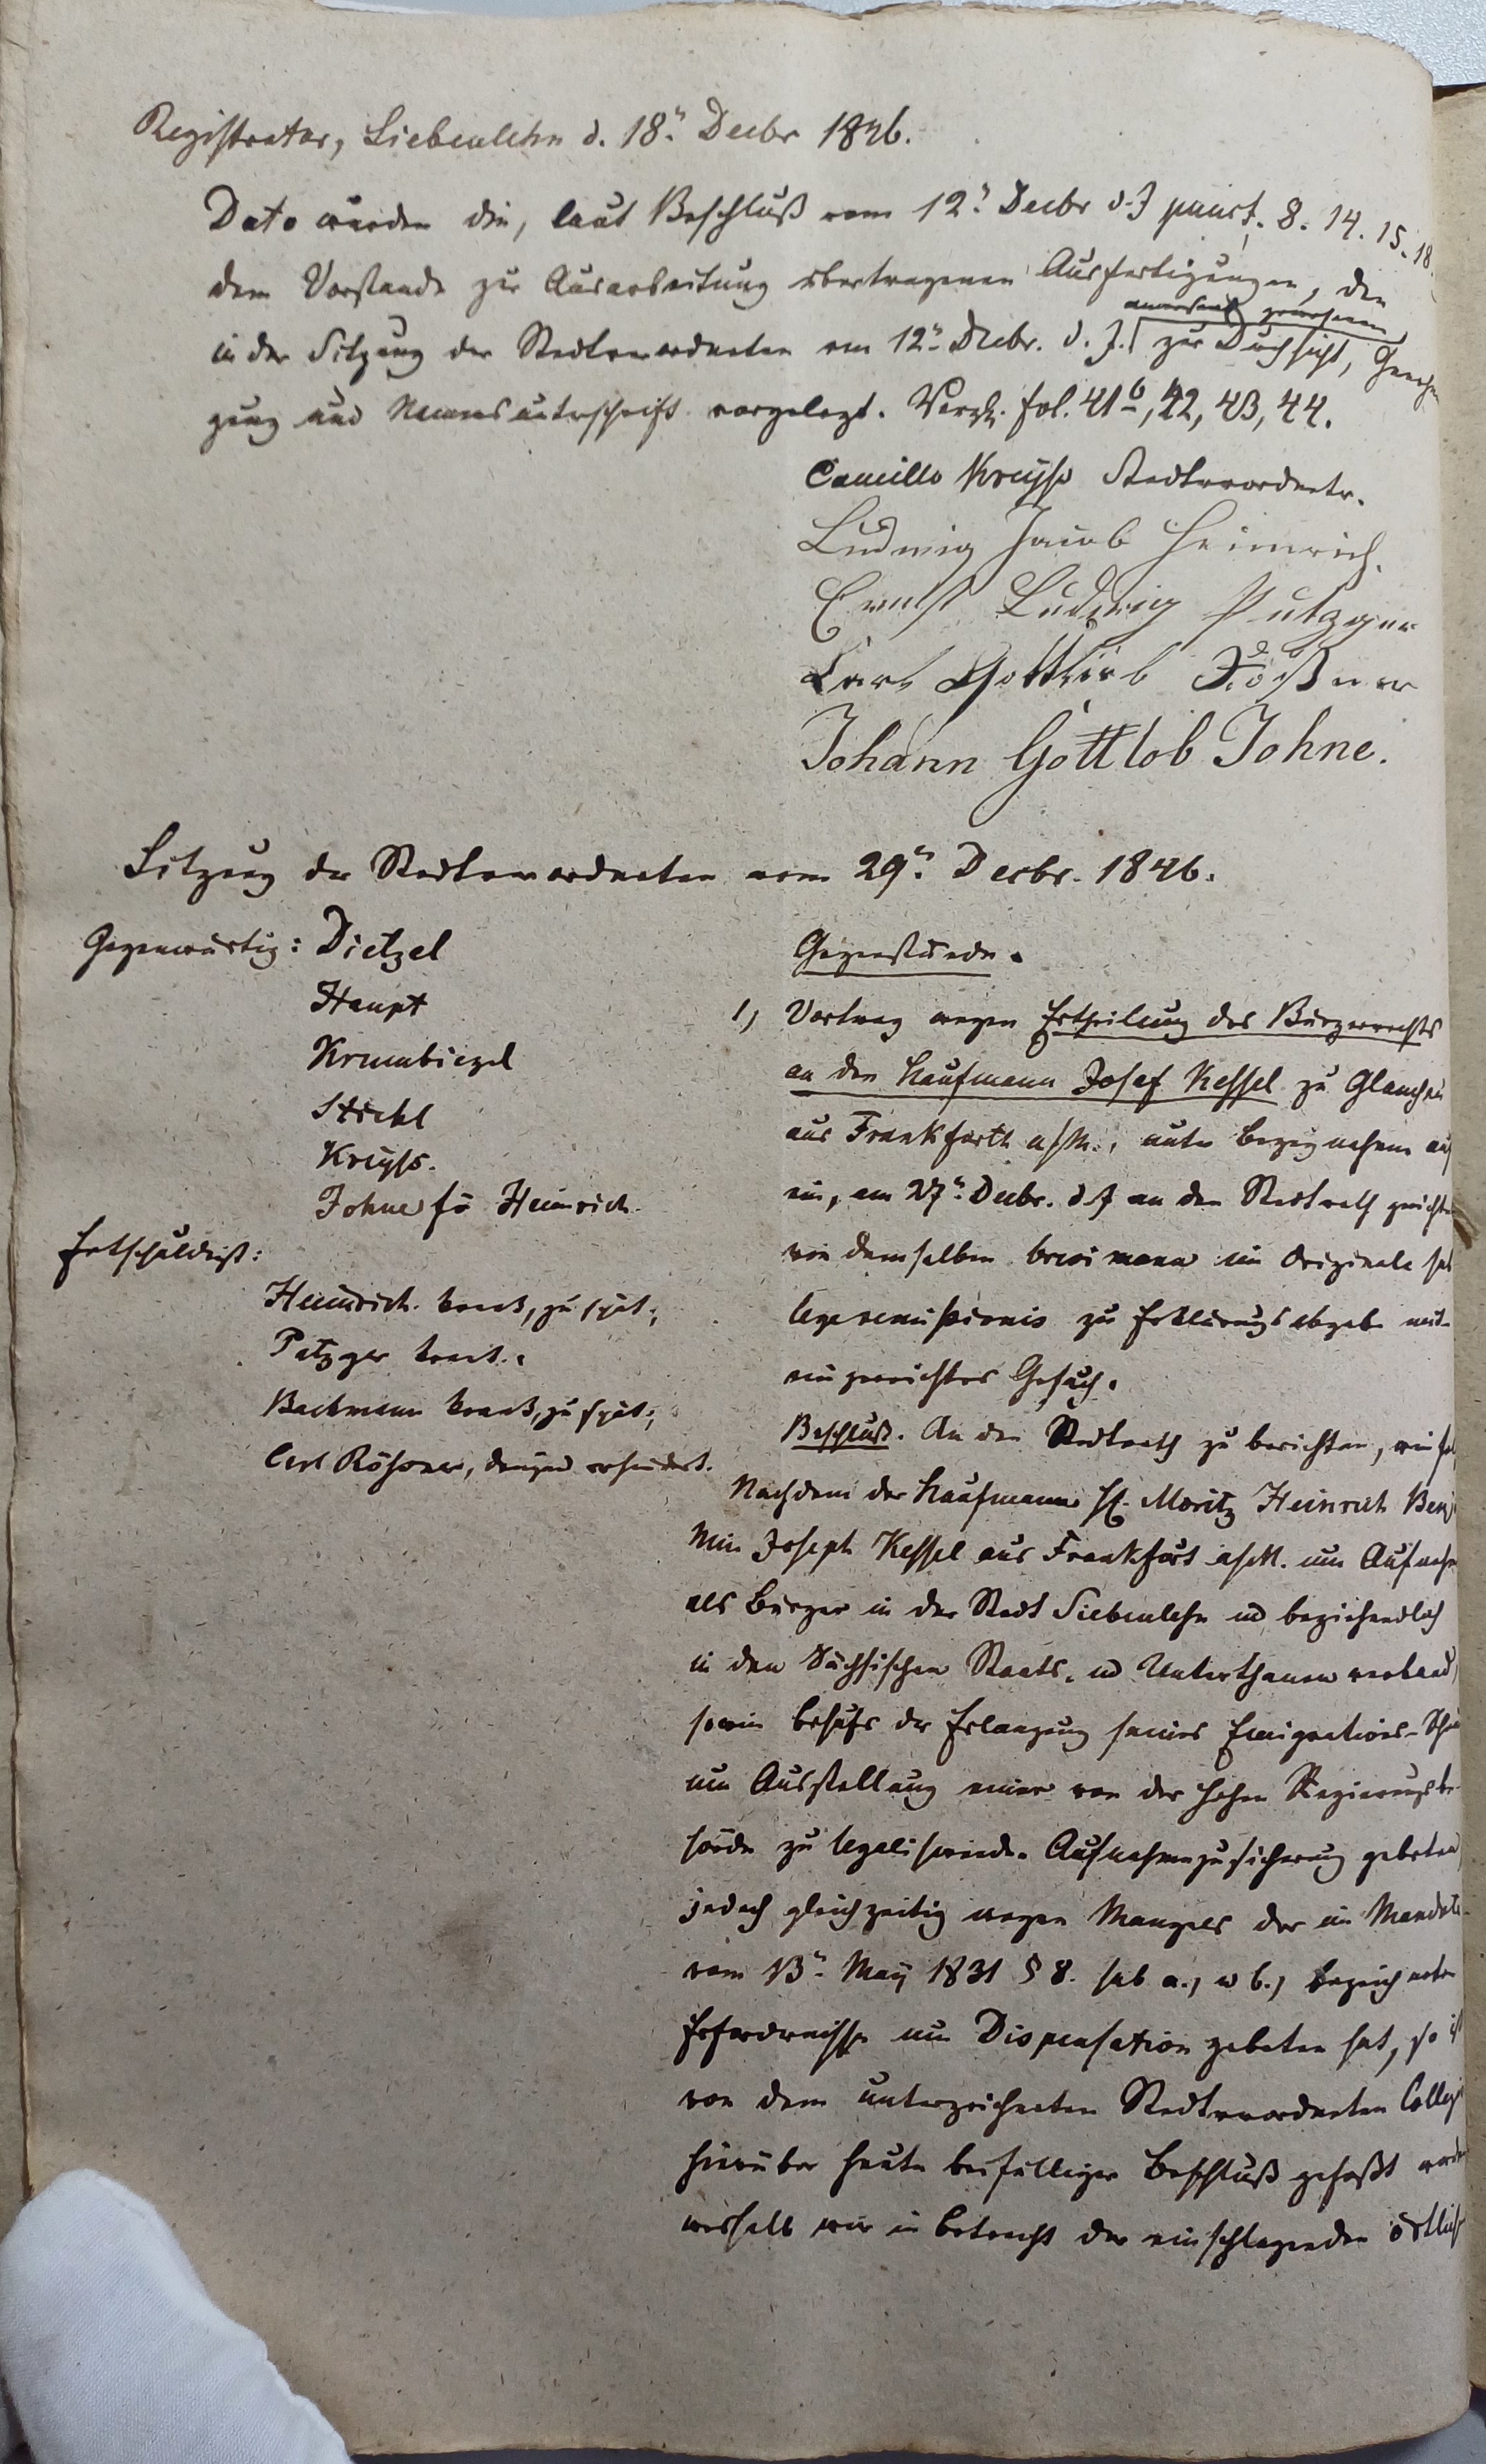 Registratur, Siebenlehn d. 18n Decbr 1846.
Dato wurden die, laut Beschluß vom 12n Decbr d. J punct. 8. 14. 15. 18.
dem Vorstande zur Ausarbeitung übertragenen Ausfertigungen, den
anwesend gewesenen
in der Sitzung der Stadtverordneten vom 12n Decbr. d. J. zur Durchsicht, Genehmi
gung und Namensunterschrift vorgelegt. Vergl. fol. 41b, 42, 43, 44.
Camillo Kreyß Stadtverordnetr.
Ludwig Jacob Heinrich.
Ernst Ludwig Putzger
Carl Gottlieb Rößner
Johann Gottlob Johne.
Sitzung der Stadtverordneten vom 29n Decbr. 1846.
Gegenwärtig: Dietzel
Haupt
Krumbiegel
Kreyß.
Johne für Heinrich.
Entschuldigt:
Heinrich krank, zu spät;
Putzger krank.
Bachmann krank, zu spät;
Carl Rößner, verhindert.
Gegenstände.
1, Vortrag wegen Ertheilung des Bürgerrechts
an den Kaufmann Josef Kessel zu Glauchau
aus Frankfurth a/M., unter Bezugnahme auf
ein, am 27n Decbr. d J an den Stadtrath gericht
von demselben brevi manu im Originale sub
lege remissionis zu Erklärungsabgabe mit
eingereichtes Gesuch.
Beschluß. An den Stadtrath zu berichten, wie fol
Nachdem der Kaufmann H. Moritz Heinrich Benja
min Joseph Kessel aus Frankfurt a/M. um Aufnahm
als Bürger in der Stadt Siebenlehn und beziehendlich
in den Sächsischen Staats- und Unterthanenverband,
sowie behufs der Erlangung seines Emigrations-Schei
um Ausstellung einer von der hohen Regierungsbe-
hörde zu legalisirenden Aufnahmezusicherung gebeten,
jedoch gleichzeitig wegen Mangels der im Mandate
vom 13n May 1831 § 8. sub a., u b., bezeichneten
Erfordernisse um Dispensation gebeten hat, so ist
von dem unterzeichneten Stadtverordneten Colleg
hierüber heute beifälliger Beschluß gefaßt worde
weshalb wir in Betracht der einschlagenden örtlich